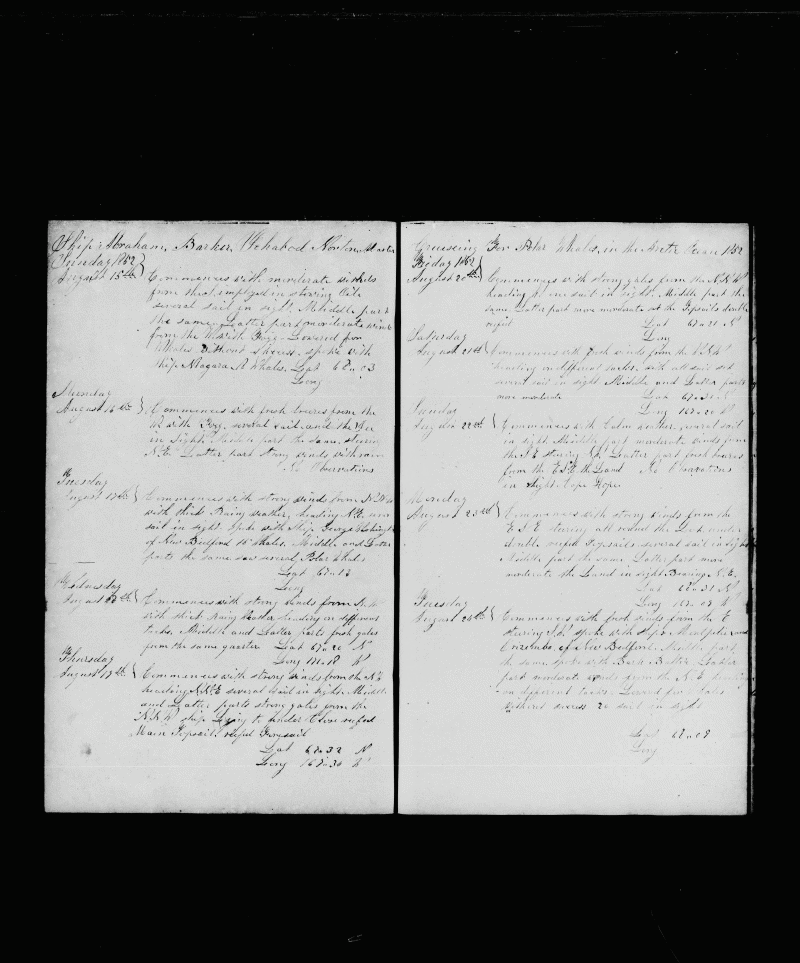 Ship Abraham Barker, Ichabod Norton Master
Sunday 1852
August 15th } Commences with moderate winds
from the employed in stowing Oile
several sail in sight. Middle part
the same, Latter part moderate winds
from the W with Fogs. Lowered for
Whales Without Success, spoke with
Ship Niagara Whales. Lat 68..03
Long
Monday
August 16th } Commences with fresh breeses from the
W with Fog, several sail and the Ice
in Sight. Middle part the same, steering
N.E. Latter part strong winds with rain
No Observations
Tuesday
August 17th } Commences with strong winds from
with thick Rainy Weather, heading N.E.
sail in sight. Spoke with Ship George Washington
of New Bedford 15 Whales. Middle and Latter
parts the same saw several Polar Whales
Lat 67..
Long
Wednesday
August 18th } Commences with strong winds from
with thick Rainy Weather heading on different
tacks, Middle and Latter parts fresh gales
from the same quarter Lat 67..20 N
Long 18 W
Thursday
August 19th } Commences with strong winds from the N.E
heading several sail in sight. Middle
and Latter parts strong gales from the
ship Lying to under Close reefed
Main Topsail, reefed Foresail
Lat 67..32 N
Long 168..30 W
Cruiseing For Polar Whales, in the Arctic Ocean 1852
Friday 1852
August 20th } Commences with strong gales from the
heading one sail in sight. Middle part the
same Latter part more moderate set the Topsails double
reefed Lat 67..21 N
Long
Saturday
August 21st } Commences with fresh winds from the
heading on different tacks, with all sail set
several sail in sight Middle and Latter parts
more moderate Lat 67.. N
Long 167..20 W
Sunday
August 22nd } Commences with Calm weather, several sail
in sight. Middle part moderate winds from
the S.E. steering Latter part fresh breeses
from the E.S.E. the Land No Observations
in sight. Cape Hope
Monday
August 23rd } Commences with strong winds from the
E.S.E. steering all round the Deck under
double reefed Topsails several sail in sight
Middle part the same. Latter part more
moderate the Land in sight Bearing N.E.
Lat N
Long W
Tuesday
August 24th } Commences with fresh winds from the E
steering spoke with Ships Montpelier and
of New Bedford. Middle part
the same spoke with Bark Latter
part moderate winds from the N.E. heading
on different tacks. Lowered for Whales
without success 20 sail in sight
Lat 67..08
Long